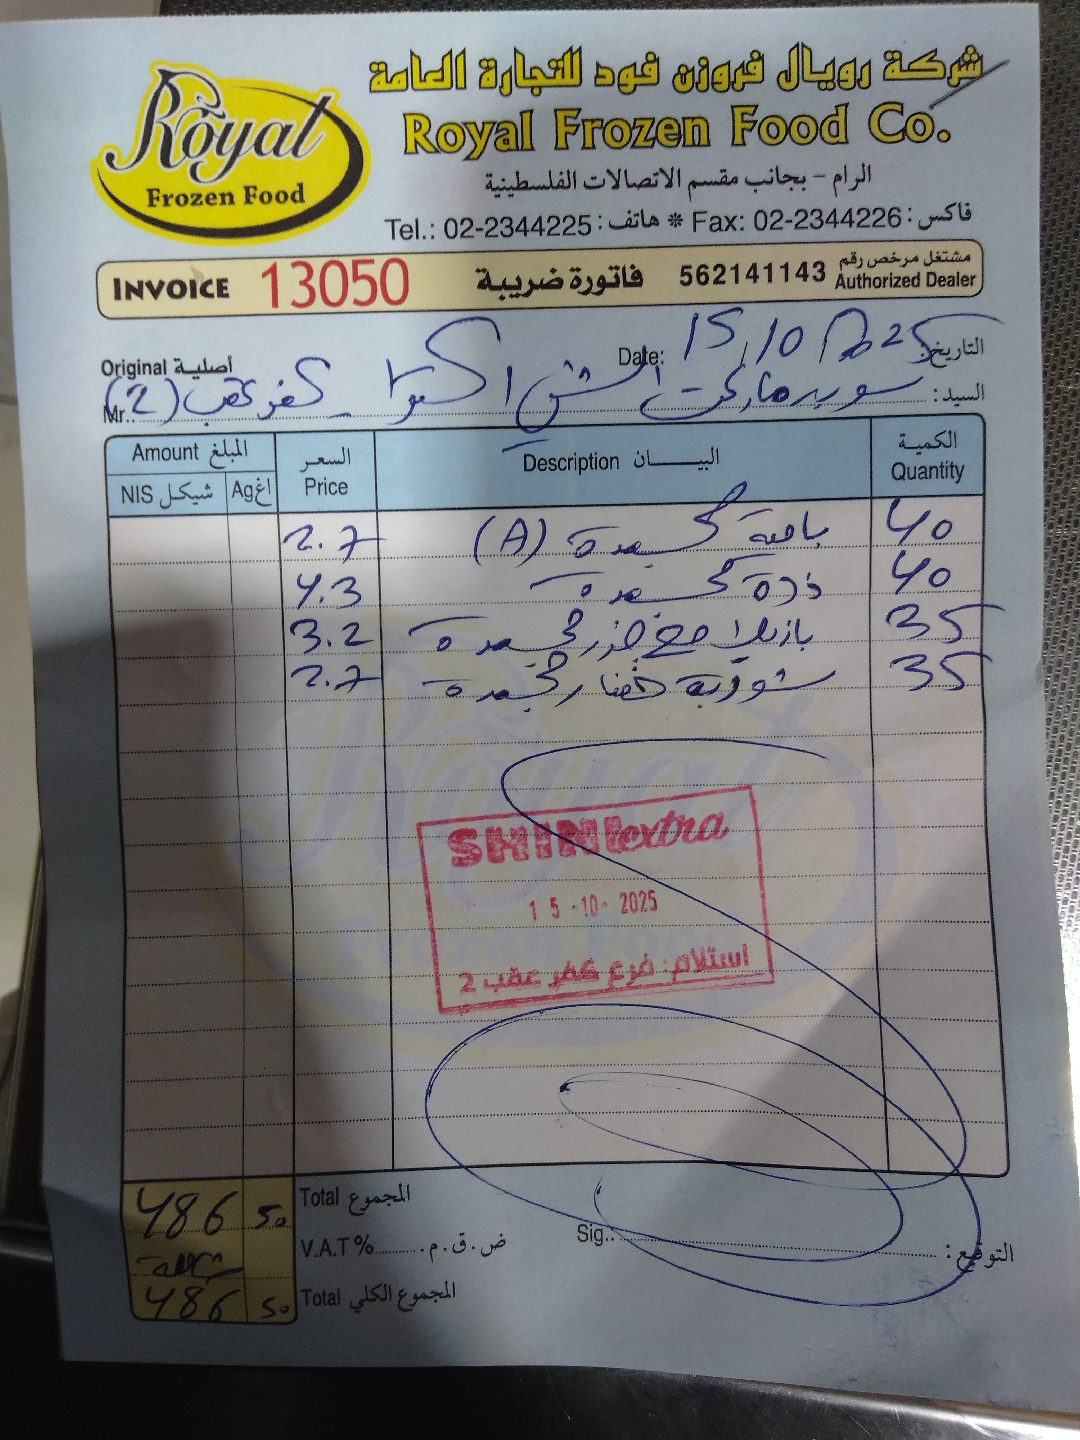 شركة رويال فروزن فود للتجارة العامة
Royal Frozen Food Co.
Royal
Frozen Food
الرام - بجانب مقسم الاتصالات الفلسطينية
Tel.: 02-2344225 : هاتف * Fax: 02-2344226 : فاكس
INVOICE 13050 فاتورة ضريبة 562141143 مشتغل مرخص رقم
Authorized Dealer
Original أصلية Date: 15/10/2025 التاريخ:
Mr.: سوبر ماركت الشني اكسترا - كفر عقب (2) السيد:
Amount المبلغ السعر البيـــان الكمية
NIS شيكل Ag اغ Price Description Quantity
2.7 بامية مجمدة (A) 40
4.3 ذرة مجمدة 40
3.2 بازيلا مع جزر مجمدة 35
2.7 شوربة خضار مجمدة 35
SHINI extra
15-10-2025
استلام: فرع كفر عقب 2
486 50 Total المجموع
شاملة V.A.T% ض.ق.م. Sig.: التوقيع:
486 50 Total المجموع الكلي